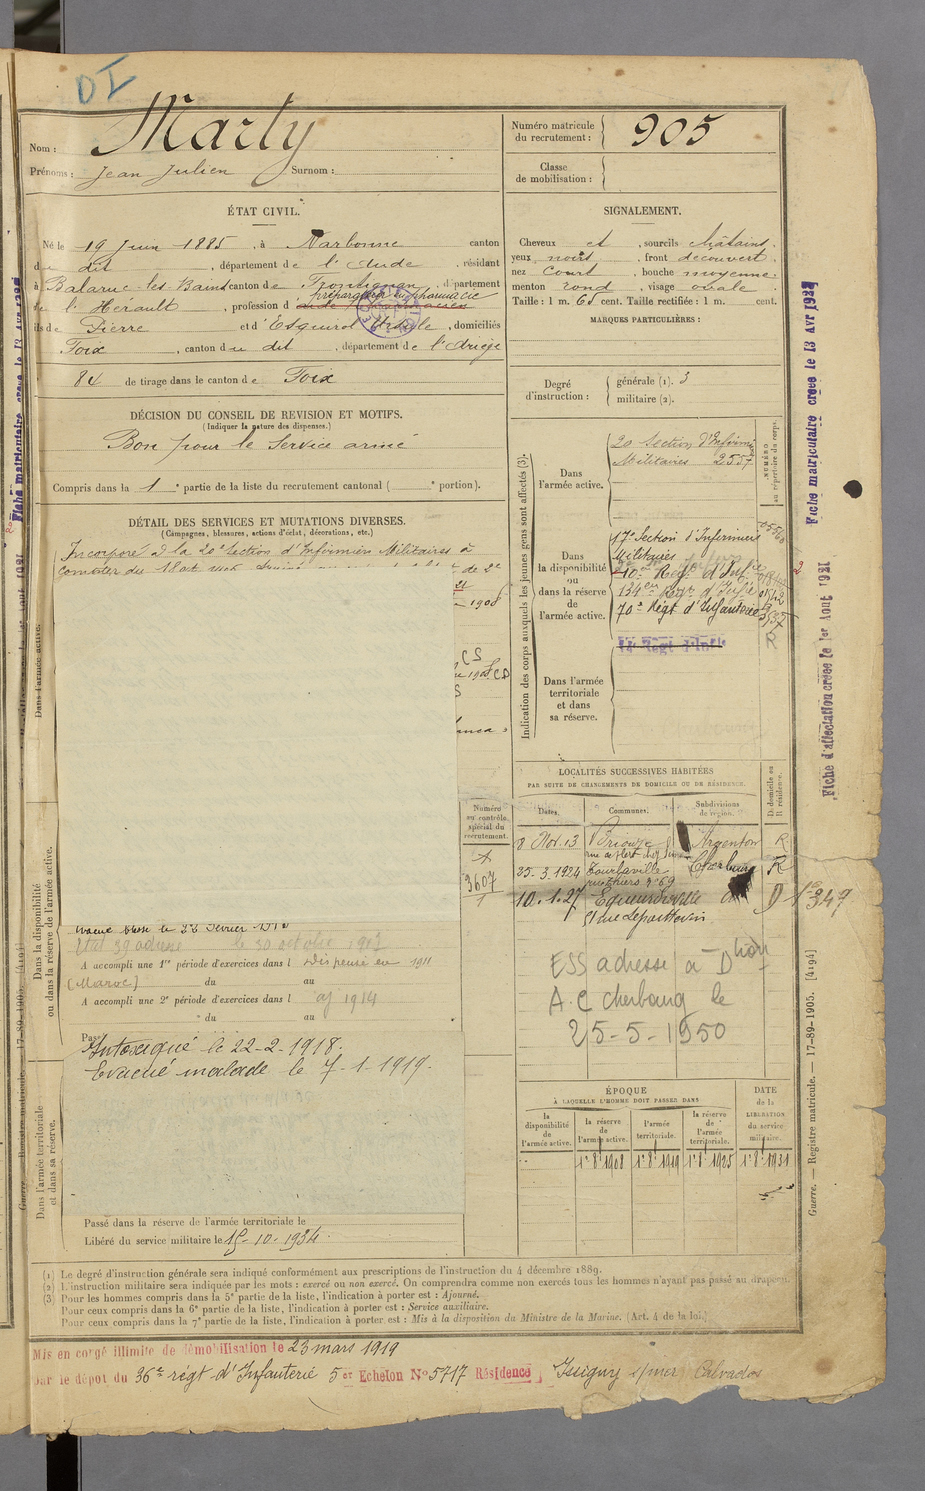 DI
Nom : Marty
Prénoms : Jean Julien Surnom :
Numéro matricule du recrutement : 905
Classe de mobilisation :
ÉTAT CIVIL.
Né le 19 Juin 1885, à Narbonne canton
du dit, département de l'Aude, résidant
à Balaruc-les-Bains canton de Frontignan, département
de l'Hérault, profession d préparateur en pharmacie
fils de Pierre et d'Esquirol Ursule, domiciliés
Foix, canton du dit, département de l'Ariège
84 de tirage dans le canton de Foix
SIGNALEMENT.
Cheveux et, sourcils châtains.
yeux noirs, front découvert.
nez court, bouche moyenne.
menton rond, visage ovale.
Taille : 1 m. 65 cent. Taille rectifiée : 1 m. cent.
MARQUES PARTICULIÈRES :
Degré d'instruction : générale (1). 3
militaire (2).
DÉCISION DU CONSEIL DE REVISION ET MOTIFS.
(Indiquer la nature des dispenses.)
Bon pour le Service armé
Compris dans la 1e partie de la liste du recrutement cantonal ( e portion).
DÉTAIL DES SERVICES ET MUTATIONS DIVERSES.
(Campagnes, blessures, actions d'éclat, décorations, etc.)
Incorporé à la 20e Section d'Infirmiers Militaires à
compter du
de 2e
1908
CS
Dans l'armée active.
Dans la disponibilité ou dans la réserve de l'armée active.
Dans l'armée territoriale et dans sa réserve.
Indication des corps auxquels les jeunes gens sont affectés (3).
NUMÉRO au répertoire du corps.
Dans l'armée active.
20 Section d'Infirmiers
Militaires 2557
Dans la disponibilité ou dans la réserve de l'armée active.
17e Section d'Infirmiers
Militaires
210e Regt d'Infie
134e Regt d'Infie
70e Régt d'Infanterie
R
Dans l'armée territoriale et dans sa réserve.
LOCALITÉS SUCCESSIVES HABITÉES
PAR SUITE DE CHANGEMENTS DE DOMICILE OU DE RÉSIDENCE.
D. domicile ou R. résidence.
Dates. Communes. Subdivisions de région.
8 Nov. 13 Briouze Argentan R
25.3.1924 Tourlaville Cherbourg R
rue Thiers no 69
10.1.27 Equeurdreville D
51 rue
347
ESS adresse à Don
A.C Cherbourg le
25-5-1950
Numéro au contrôle spécial du recrutement.
3607
1
A accompli une 1re période d'exercices dans l Dispensé en 1911
(Maroc) du au
A accompli une 2e période d'exercices dans l aj 1914
du au
Pas
Intoxiqué le 22-2-1918.
Evacué malade le 7-1-1919.
ÉPOQUE
À LAQUELLE L'HOMME DOIT PASSER DANS
DATE de la LIBÉRATION du service militaire.
la disponibilité de l'armée active. la réserve de l'armée active. l'armée territoriale. la réserve de l'armée territoriale.
1r 8 1908 1r 8 1919 1r 8 1925 1r 8 1931
Passé dans la réserve de l'armée territoriale le
Libéré du service militaire le 15-10-1934.
(1) Le degré d'instruction générale sera indiqué conformément aux prescriptions de l'instruction du 4 décembre 1889.
(2) L'instruction militaire sera indiquée par les mots : exercé ou non exercé. On comprendra comme non exercés tous les hommes n'ayant pas passé au drapeau.
(3) Pour les hommes compris dans la 5e partie de la liste, l'indication à porter est : Ajourné.
Pour ceux compris dans la 6e partie de la liste, l'indication à porter est : Service auxiliaire.
Pour ceux compris dans la 7e partie de la liste, l'indication à porter est : Mis à la disposition du Ministre de la Marine. (Art. 4 de la loi.)
Mis en congé illimité de démobilisation le 23 mars 1919
par le dépôt du 36e régt d'Infanterie 5er Echelon No 5717 Résidence Isigny s/mer Calvados
Fiche matriculaire créée le 13 Avr 192
Fiche d'affectation créée le 1er Août 1921
Guerre. — Registre matricule. — 17-89-1905. [4194]